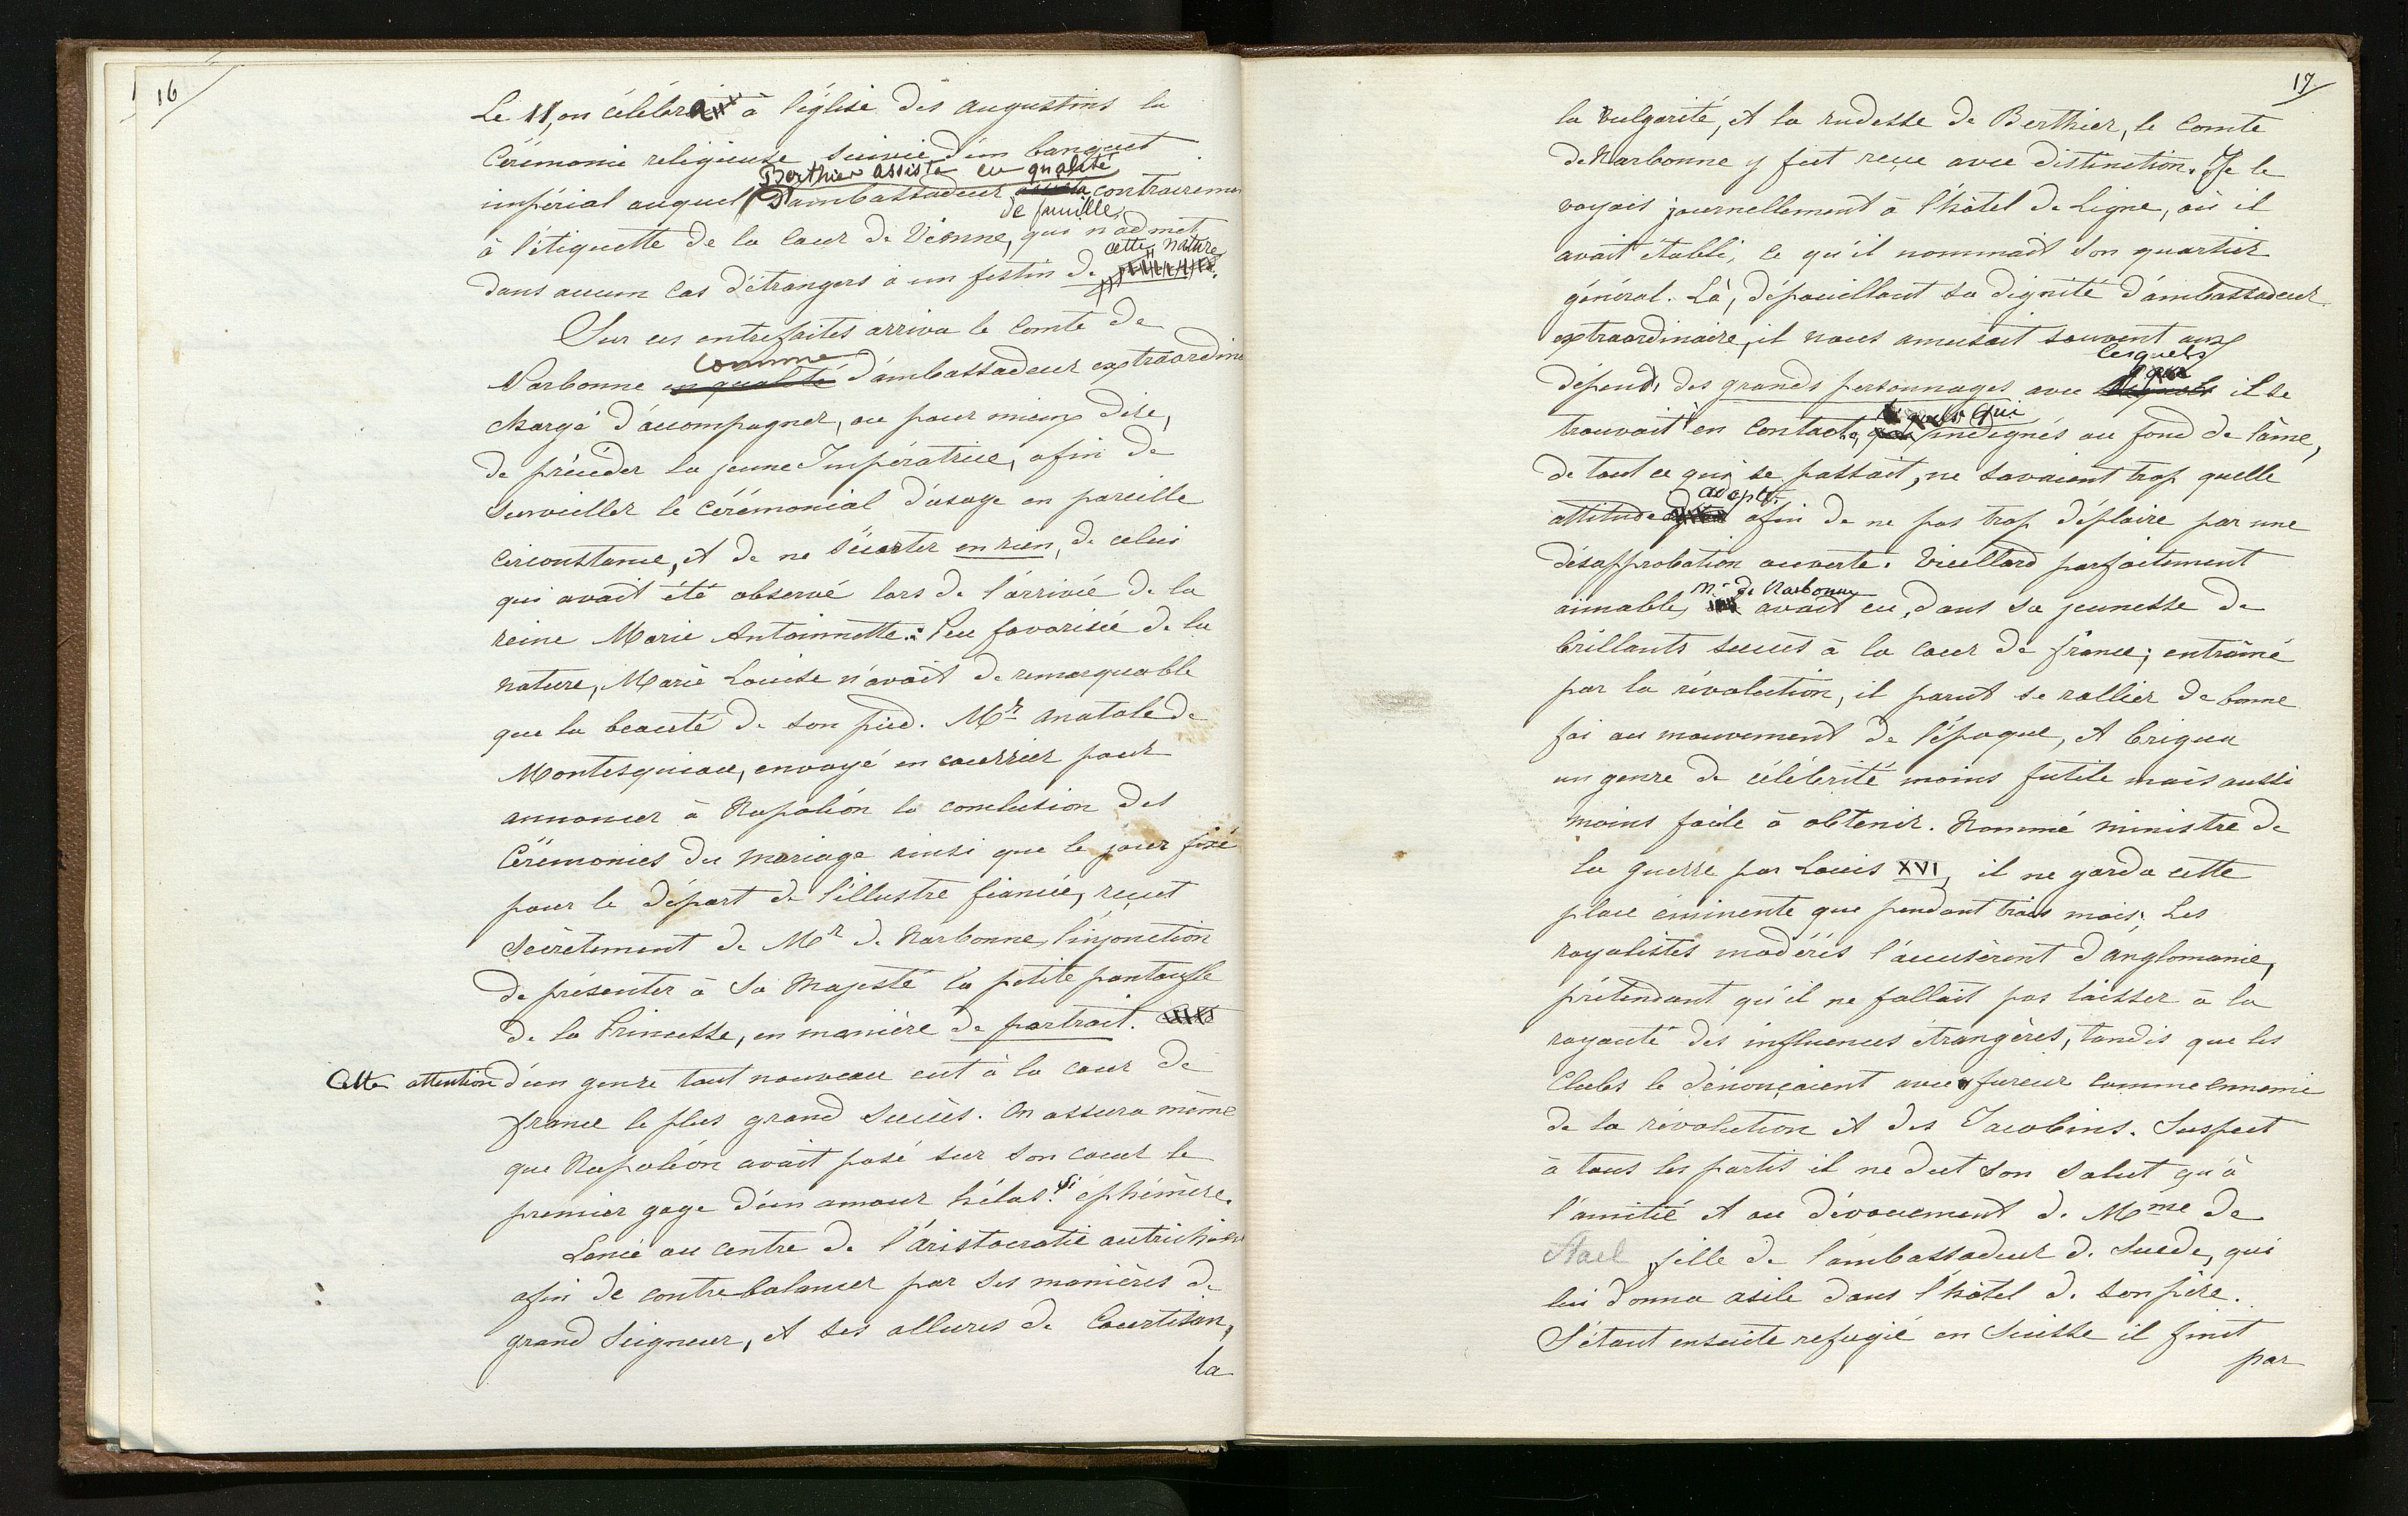 16
Le 11, on célébra à l'église des augustins la
Cérémonie religieuse suivie d'un banquet
Berthier assista en qualité
impérial auquel d'ambassadeur assista contrairement
de famille,
à l'étiquette de la Cour de Vienne, qui n'admet
cette nature
dans aucun cas d'étrangers à un festin de
Sur ces entrefaites arriva le Comte de
comme
Narbonne en qualité d'ambassadeur extraordine
chargé d'accompagner, ou pour mieux dire,
de précéder la jeune Impératrice, afin de
surveiller le Cérémonial d'usage en pareille
circonstance, et de ne s'écarter en rien, de celui
qui avait été observé lors de l'arrivée de la
reine Marie Antoinnette. Peu favorisée de la
nature, Marie Louise n'avait de remarquable
que la beauté de son pied. Mr Anatole de
Montesquiou, envoyé en courrier pour
annoncer à Napoléon la conclusion des
Cérémonies du mariage ainsi que le jour fixé
pour le départ de l'illustre fiancée, reçut
secrètement de Mr de Narbonne, l'injonction
de présenter à Sa Majesté la petite pantoufle
de la Princesse, en manière de portrait.
Cette attention d'un genre tout nouveau eut à la cour de
france le plus grand succès. On assura même
que Napoléon avait posé sur son coeur le
premier gage d'un amour hélas! si éphémère.
Lancé au centre de l'aristocratie autrichien
afin de contrebalancer par ses manières de
grand Seigneur, et ses allures de Courtisan,
la
17
la vulgarité, et la rudesse de Berthier, le Comte
de Narbonne y fut reçu avec distinction. Je le
voyais journellement à l'hôtel de Ligne, où il
avait établi, ce qu'il nommait son quartier
général. Là, dépouillant sa dignité d'ambassadeur
extraordinaire, il nous amusait souvent aux
lesquels
dépends des grands personnages avec lesquels il se
qui
trouvait en contact, indignés au fond de l'âme,
de tout ce qui se passait, ne savaient trop quelle
adopter
attitude afin de ne pas trop déplaire par une
désapprobation ouverte. Vieillard parfaitement
Mr de Narbonne
aimable, avait eu, dans sa jeunesse de
brillants succès à la cour de france; entrâiné
par la révolution, il parut se rallier de bonne
foi au mouvement de l'époque, et brigua
un genre de célébrité moins futile mais aussi
moins facile à obtenir. Nommé ministre de
la guerre par Louis XVI, il ne garda cette
place éminente que pendant trois mois; Les
royalistes modérés l'accusèrent d'anglomanie,
prétendant qu'il ne fallait pas laisser à la
royauté des influences étrangères, tandis que les
Clubs le dénonçaient avec fureur comme ennemi
de la révolution et des Jacobins. Suspect
à tous les partis il ne dut son salut qu'à
l'amitié et au dévouement de Mme de
Stael fille de l'ambassadeur de Suede, qui
lui donna asile dans l'hôtel de son père.
S'étant ensuite refugié en Suisse il finit
par